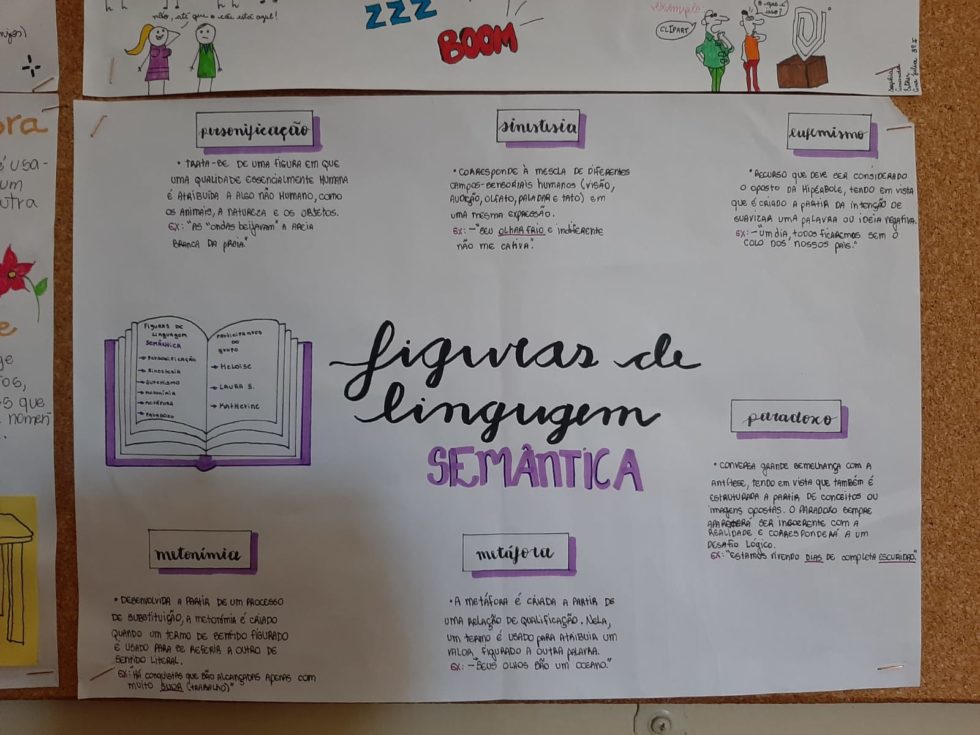 não, até que o céu está azul!
ZZZ
BOOM
exemplo:
CLIPART
ora
é usa-
um
outra
e
ge
tos,
s que
nomen
personificação
• TRATA-SE DE UMA FIGURA EM QUE
UMA QUALIDADE ESSENCIALMENTE HUMANA
É ATRIBUÍDA A ALGO NÃO HUMANO, COMO
OS ANIMAIS, A NATUREZA E OS OBJETOS.
EX: "AS "ONDAS BEIJAVAM" A AREIA
BRANCA DA PRAIA."
sinestesia
• CORRESPONDE À MESCLA DE DIFERENTES
CAMPOS-SENSORIAIS HUMANOS (VISÃO,
AUDIÇÃO, OLFATO, PALADAR E TATO) EM
UMA MESMA EXPRESSÃO.
EX: -"SEU OLHAR FRIO E INDIFERENTE
NÃO ME CATIVA."
eufemismo
• RECURSO QUE DEVE SER CONSIDERADO
O OPOSTO DA HIPÉRBOLE, TENDO EM VISTA
QUE É CRIADO A PARTIR DA INTENÇÃO DE
SUAVIZAR UMA PALAVRA OU IDEIA NEGATIVA.
EX: -"UM DIA, TODOS FICAREMOS SEM O
COLO DOS NOSSOS PAIS."
FIGURAS DE
LINGUAGEM
SEMÂNTICA
→ PERSONIFICAÇÃO
→ SINESTESIA
→ EUFEMISMO
→ METONÍMIA
→ METÁFORA
→ PARADOXO
PARTICIPANTES
DO
GRUPO
→ HELOISE
→ LAURA S.
→ KATHERINE
figuras de
lingugem
SEMÂNTICA
paradoxo
• CONVERSA GRANDE SEMELHANÇA COM A
ANTÍTESE, TENDO EM VISTA QUE TAMBÉM É
ESTRUTURADA A PARTIR DE CONCEITOS OU
IMAGENS OPOSTAS. O PARADOXO SEMPRE
SER INCOERENTE COM A
REALIDADE E CORRESPONDERÁ A UM
DESAFIO LÓGICO.
EX: "ESTAMOS VIVENDO DIAS DE COMPLETA ESCURIDÃO."
metonímia
• DESENVOLVIDA A PARTIR DE UM PROCESSO
DE SUBSTITUIÇÃO, A METONÍMIA É CRIADO
QUANDO UM TERMO DE SENTIDO FIGURADO
É USADO PARA SE REFERIR A OUTRO DE
SENTIDO LITERAL.
EX: "HÁ CONQUISTAS QUE SÃO ALCANÇADAS APENAS COM
MUITO SUOR (TRABALHO)"
metáfora
• A METÁFORA É CRIADA A PARTIR DE
UMA RELAÇÃO DE QUALIFICAÇÃO. NELA,
UM TERMO É USADO PARA ATRIBUIR UM
VALOR FIGURADO A OUTRA PALAVRA.
EX: -"SEUS OLHOS SÃO UM OCEANO."